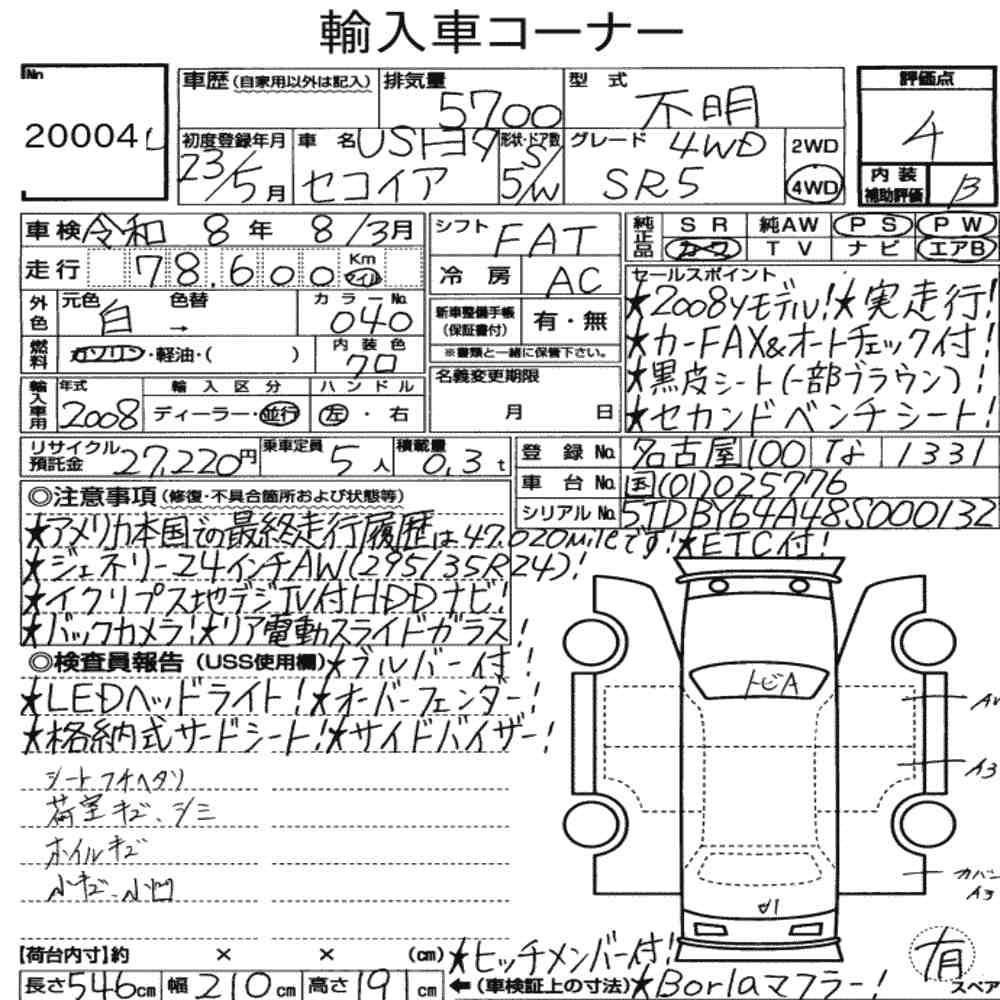 輸入車コーナー
No. 20004
車歴(自家用以外は記入) 排気量 5700 型式 不明 評価点 4
初度登録年月 23/5月 車名 USトヨタ セコイア 形状・ドア数 5/W グレード 4WD SR5 2WD 4WD
内装補助評価 B
車検 令和 8年 8/3月 シフト FAT 純正品 SR 純AW PS PW
走行 78,600 Km マイル 冷房 AC カワ TV ナビ エアB
外色 元色 白 色替 → カラーNo. 040 新車整備手帳(保証書付) 有・無
※書類と一緒に保管下さい。
燃料 ガソリン・軽油・( ) 内装色 クロ
輸入車用 年式 2008 輸入区分 ディーラー・並行 ハンドル 左・右
名義変更期限 月 日
セールスポイント
★2008yモデル!★実走行!
★カーFAX&オートチェック付!
★黒皮シート(一部ブラウン)!
★セカンドベンチシート!
リサイクル預託金 27,220円 乗車定員 5人 積載量 0.3t
登録No. 名古屋 100 な 1331
車台No. 国(01)025776
シリアルNo. 5TDBY64A48S000132
◎注意事項(修復・不具合箇所および状態等)
★アメリカ本国での最終走行履歴は47,020mileです!★ETC付!
★ジェネリー24インチAW(295/35R24)!
★イクリプス地デジTV付HDDナビ!
★バックカメラ!★リア電動スライドガラス!
◎検査員報告(USS使用欄)★ブルバー付!
★LEDヘッドライト!★オーバーフェンダー!
★格納式サードシート!★サイドバイザー!
シートフチヘタリ
荷室キズ、シミ
ホイルキズ
小キズ、小凹
トビA
A3
カバー
A3
【荷台内寸】約 × × (cm) ★ヒッチメンバー付!
長さ546cm 幅210cm 高さ191cm ←(車検証上の寸法)★Borlaマフラー!
有
スペア